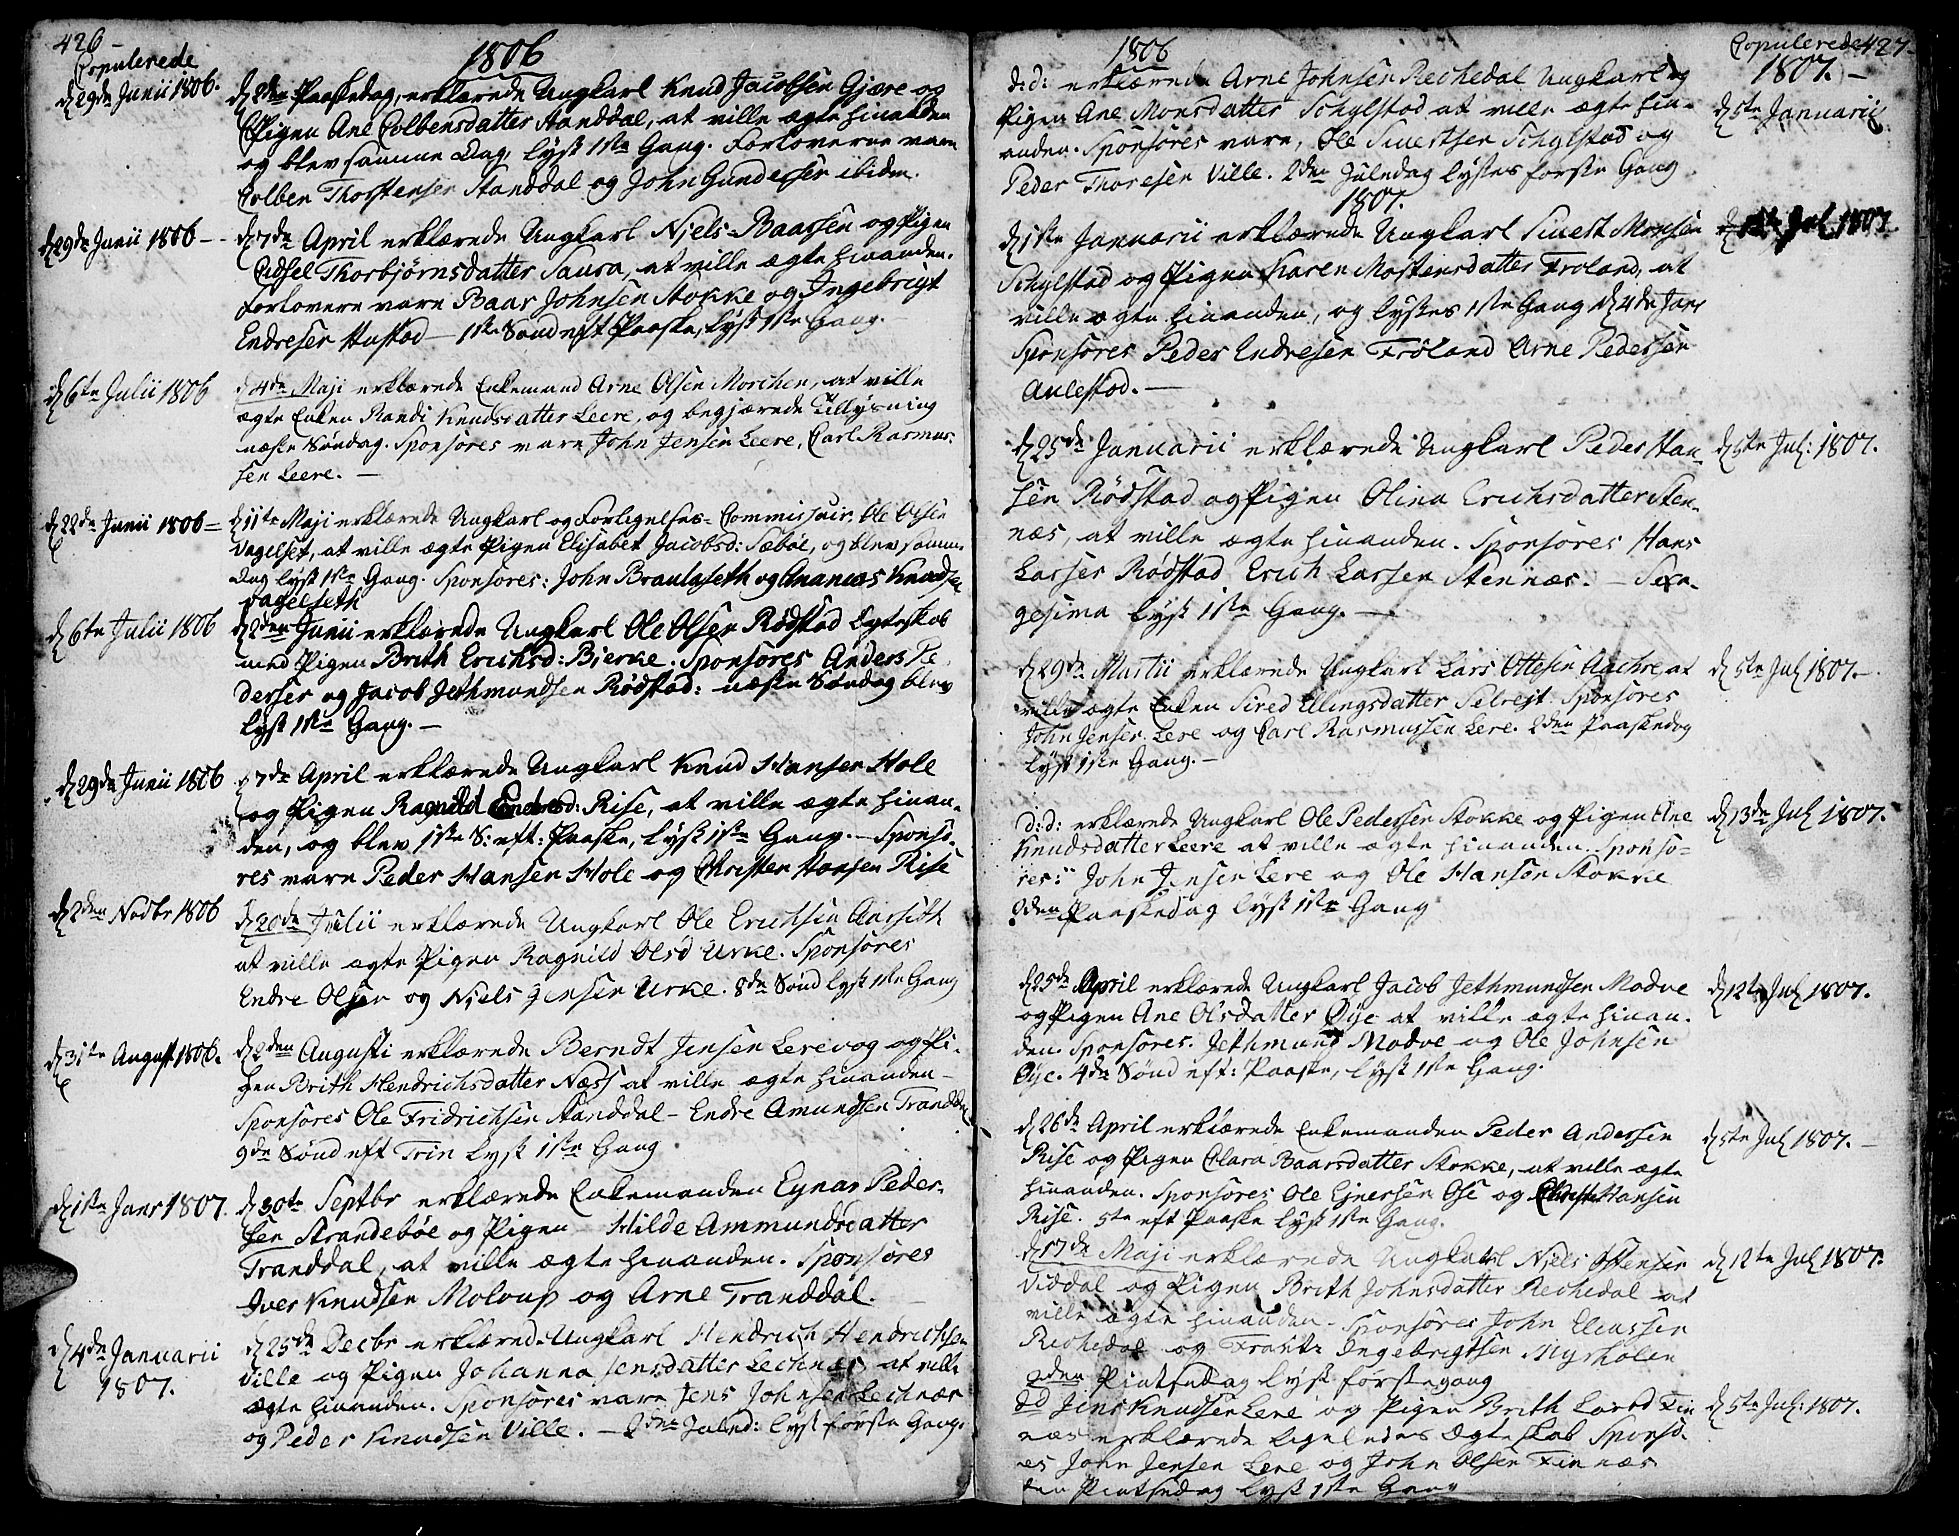 426 -
Copulerede
1806
d 29de Junii 1806.
d 2den Paaskedag, erklærede Ungkarl Knud Jacobsen Gjære og
Pigen Ane Colbensdatter Standdal, at ville ægte hinanden
og blev samme Dag, lyst 1ste Gang. Forloverne vare
Colben Thorstensen Standdal og John Gundersen ibidm.
d 29de Junii 1806 -
d 7de April erklærede Ungkarl Niels Baarsen og Pigen
Cidsel Thorbjørnsdatter Saura, at ville ægte hinanden.
Forlovere vare Baar Johnsen Stokke og Ingebrigt
Endresen Hustad - 1ste Sønd eft Paaske, lyst 1ste Gang.
d 6te Julii 1806
d 4de Maji erklærede Enkemand Arne Olsen Morchen, at ville
ægte Enken Randi Knudsdatter Leere, og begjærede Tillysning
næste Søndag. Sponsores vare John Jensen Leere, Carl Rasmus-
sen Leere. -
d 22de Junii 1806 =
d 11te Maji erklærede Ungkarl og Forligelses-Commissair. Ole Olsen
Vagelset, at ville ægte Pigen Elisabet Jacobsd: Sæbøe, og blev samme
dag lyst 1ste Gang. Sponsores: John Braulaseth og Ananias Knudsen
Vagelseth
d 6te Julii 1806
d 2den Junii erklærede Ungkarl Ole Olsen Rødstad Egteskab
med Pigen Brith Erichsd: Bierke. Sponsores Anders Pe
dersen og Jacob Jethmundsen Rødstad: næste Søndag blev
lyst 1ste Gang. -
d 29de Junii 1806
d 7de April erklærede Ungkarl Knud Hansen Hole
og Pigen Ragnild Endresd: Rise, at ville ægte hinan-
den, og blev 1ste S: eft: Paaske, lyst 1ste Gang. - Sponso-
res vare Peder Hansen Hole og Christen Hansen Rise
d 2den Novbr 1806
d 20de Julii erklærede Ungkarl Ole Erichsen Aarsiøth
at ville ægte Pigen Ragnild Olsd Urke. Sponsores
Endre Olsen og Niels Jensen Urke. 8de Sønd lyst 1ste Gang
d 31te August 1806.
d 2den Augusti erklærede Berndt Jensen Lerevog og Pi-
gen Brith Hendrichsdatter Næss at ville ægte hinanden -
Sponsores Ole Fridrichsen Standdal - Endre Amundsen Tranddal
9de Sønd eft Trin lyst 1ste Gang.
d 1ste Janr 1807.
d 30te Septbr erklærede Enkemanden Eynar Peder-
sen Strandebøe og Pigen Hilde Ammundsdatter
Tranddal, at ville ægte hinanden. Sponsores
Iver Knudsen Moloup og Arne Tranddal.
d 4de Januarii
1807.
d 25de Decbr erklærede Ungkarl Hendrich Hendrichsen
Ville og Pigen Johanna Jensdatter Lechnæs at ville
ægte hinanden. Sponsores vare Jens Johnsen Lechnæs
og Peder Knudsen Ville. - 2den Juled: lyst første Gang.
1806
Copulerede 427
1807. -
d: d: erklærede Arne Johnsen Rechedal Ungkarl og
Pigen Ane Monsdatter Schylstad at ville ægte hin-
anden. Sponsores vare, Ole Siuestsen Schylstad og
Peder Thoresen Ville. 2den Juledag lystes første Gang
d 5te Januarii
1807.
d 1ste Januarii erklærede Ungkarl Siuest Monsen
Schylstad og Pigen Karen Mostensdatter Frøland, at
ville ægte hinanden, og lystes 1ste Gang d 4de Janr
Sponsores Peder Endresen Frøland Arne Pedersen
Aulestad. -
Jul 1807.
d 25de Januarii erklærede Ungkarl Peder Han-
sen Rødstad og Pigen Olina Erichsdatter Sten-
næs, at ville ægte hinanden. Sponsores Hans
Larsen Rødstad Erich Larsen Stennæs. - Sexa-
gesima lyst 1ste Gang. -
d 5te Jul: 1807.
d 29de Martii erklærede Ungkarl Lars Ottesen Aachre, at
ville ægte Enken Sired Ellingsdatter Selrejt. Sponsores
John Jensen Lere og Carl Rasmussen Lere. 2den Paaskedag
lyst 1ste Gang. -
d 5te Jul 1807. -
D: d: erklærede Ungkarl Ole Pedersen Stokke og Pigen Ane
Knudsdatter Leere at ville ægte hinanden. Sponso-
res: John Jensen Lere og Ole Hansen Stokke
2den Paaskedag lyst 1ste Gang
d 13de Jul 1807.
d 25de April erklærede Ungkarl Jacob Jethmundsen Modve
og Pigen Ane Olsdatter Øye at ville ægte hinan-
den. Sponsores. Jethmund Modve og Ole Johnsen
Øye. 4de Sønd eft: Paaske, lyst 1ste Gang.
d 12te Jul 1807.
d 26de April erklærede Enkemanden Peder Andersen
Rise og Pigen Clara Baarsdatter Stokke, at ville ægte
hinanden. Sponsores Ole Ejnersen Ose og Christen Hansen
Rise. 5te eft Paaske lyst 1ste Gang.
d 5te Jul 1807. -
d 17de Maji erklærede Ungkarl Niels Ostensen
Viddal og Pigen Brith Johnsdatter Rechedal at
ville ægte hinanden. Sponsores John Eliassen
Rechedal og Frantz Ingebrigtsen Myrholen
2den Pintsedag lyst første gang
d 12te Jul 1807.
Dd Jens Knudsen Lere og Pigen Brith Larsd Fin
næs erklærede ligeledes Ægteskab Sponso-
es John Jensen Lere og John Olsen Finnæs
den Pintsedag lyst 1ste Gang
d 5te Jul: 1807.